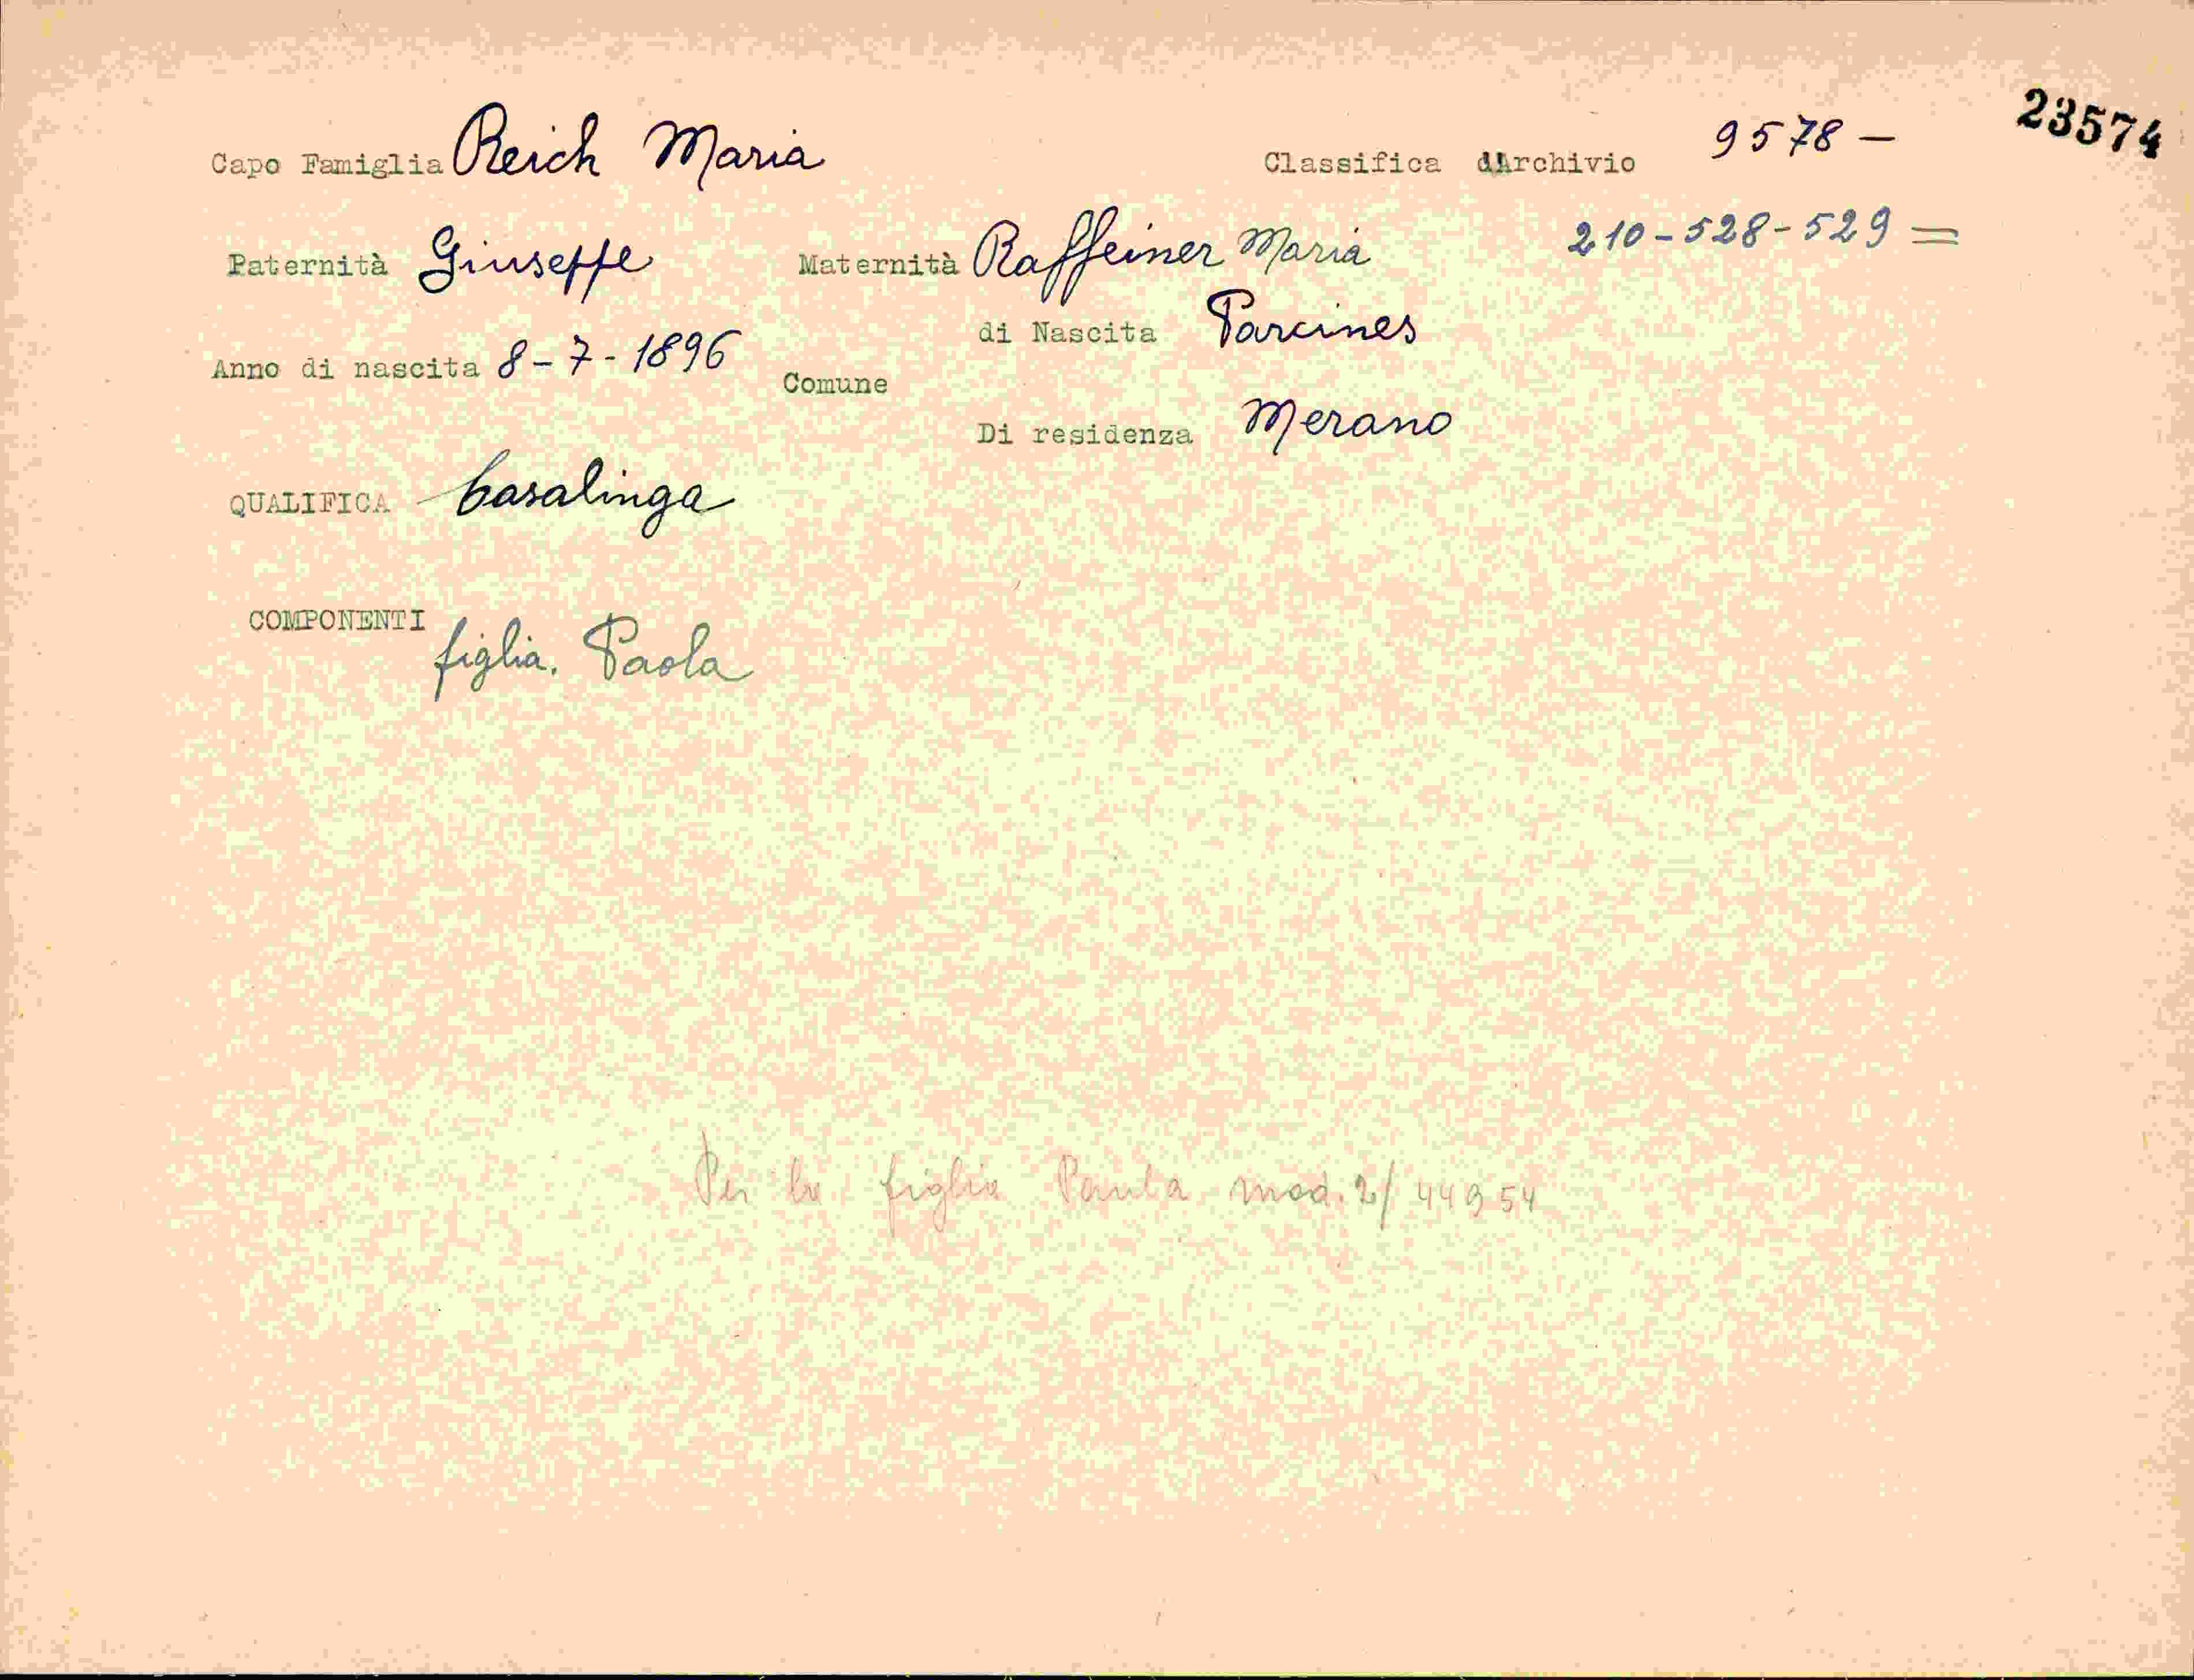 23574
Capo Famiglia Reich Maria Classifica d'Archivio 9578 -
Paternità Giuseppe Maternità Raffeiner Maria 210-528-529 =
di Nascita Parcines
Anno di nascita 8-7-1896 Comune
Di residenza Merano
QUALIFICA Casalinga
COMPONENTI
figlia. Paola
Per la figlia Paula mod. 2/44954